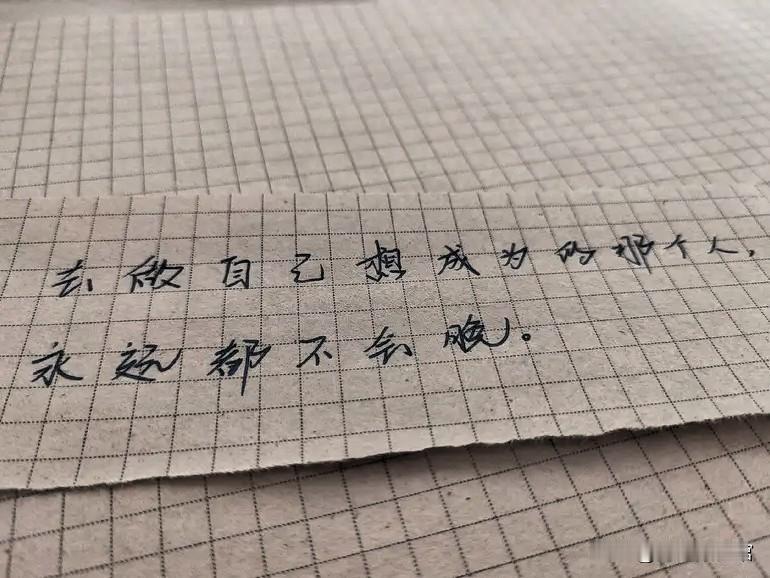 去做自己想成为的那个人,
永远都不会晚。